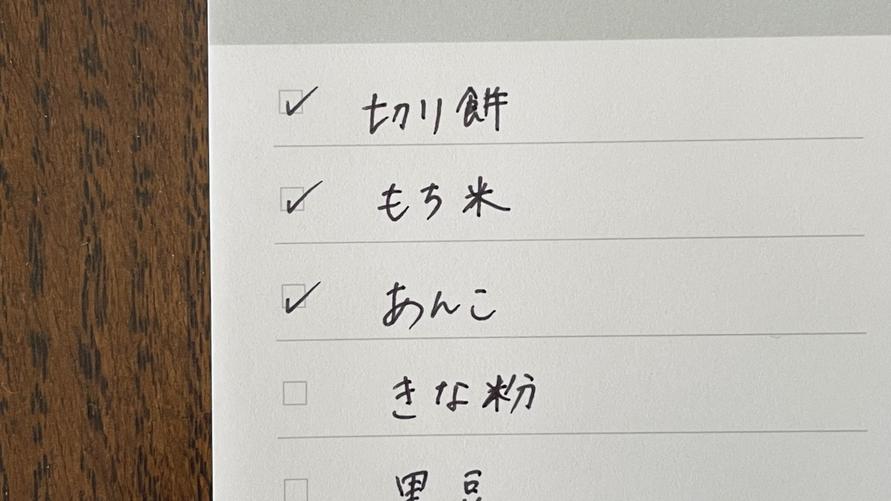 切り餅
もち米
あんこ
きな粉
黒豆